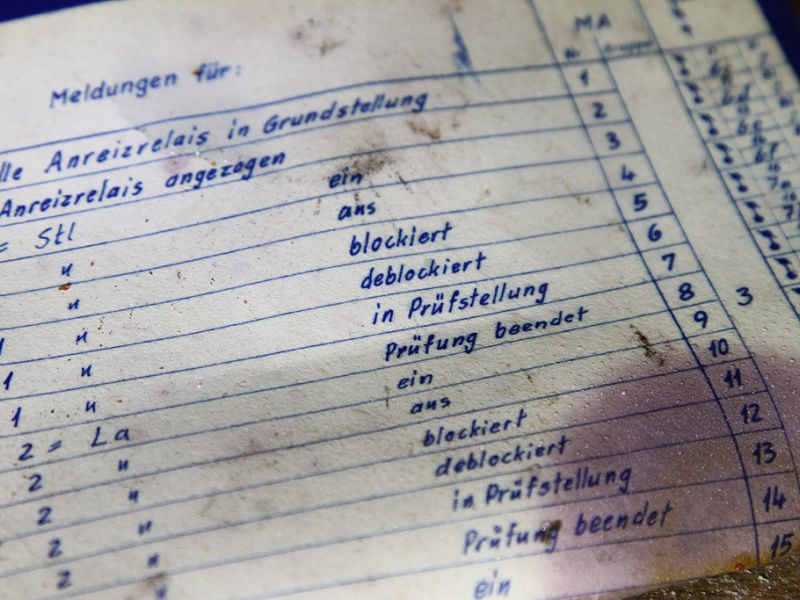 MA
Meldungen für: Nr. Gruppe
lle Anreizrelais in Grundstellung 1
Anreizrelais angezogen 2
= Stl ein 3
" aus 4
" blockiert 5
" deblockiert 6
1 " in Prüfstellung 7
1 " Prüfung beendet 8 3
1 " ein 9
2 = La aus 10
2 " blockiert 11
2 " deblockiert 12
2 " in Prüfstellung 13
2 " Prüfung beendet 14
" ein 15